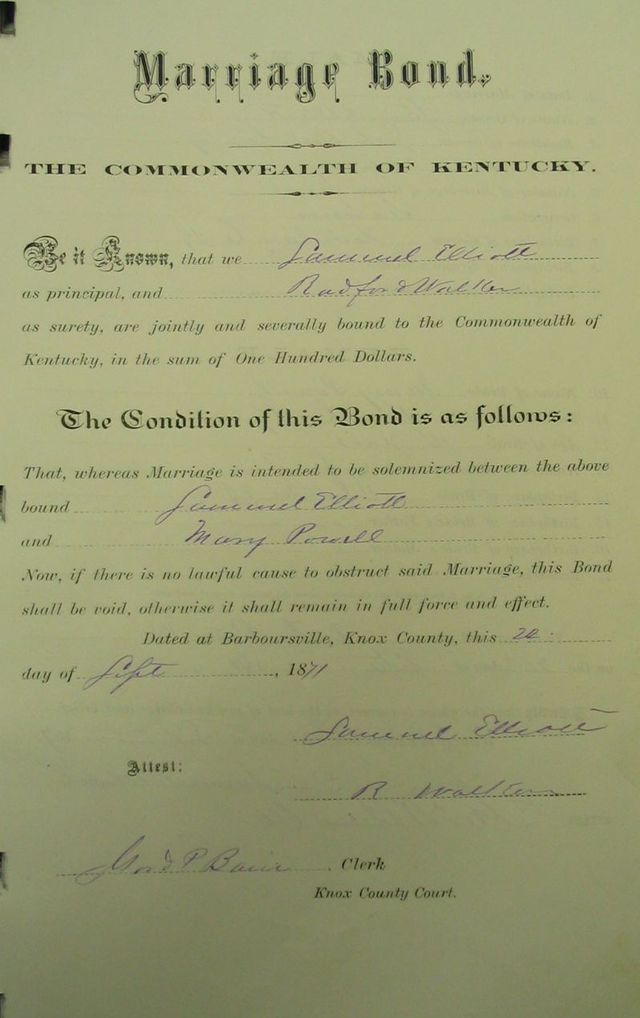 Marriage Bond.
THE COMMONWEALTH OF KENTUCKY.
Be it Known, that we Samuel Elliott
as principal, and Radford Walker
as surety, are jointly and severally bound to the Commonwealth of
Kentucky, in the sum of One Hundred Dollars.
The Condition of this Bond is as follows:
That, whereas Marriage is intended to be solemnized between the above
bound Samuel Elliott
and Mary Powell
Now, if there is no lawful cause to obstruct said Marriage, this Bond
shall be void, otherwise it shall remain in full force and effect.
Dated at Barboursville, Knox County, this
day of Sept, 1871
Samuel Elliott
Attest:
R Walker
Clerk
Knox County Court.